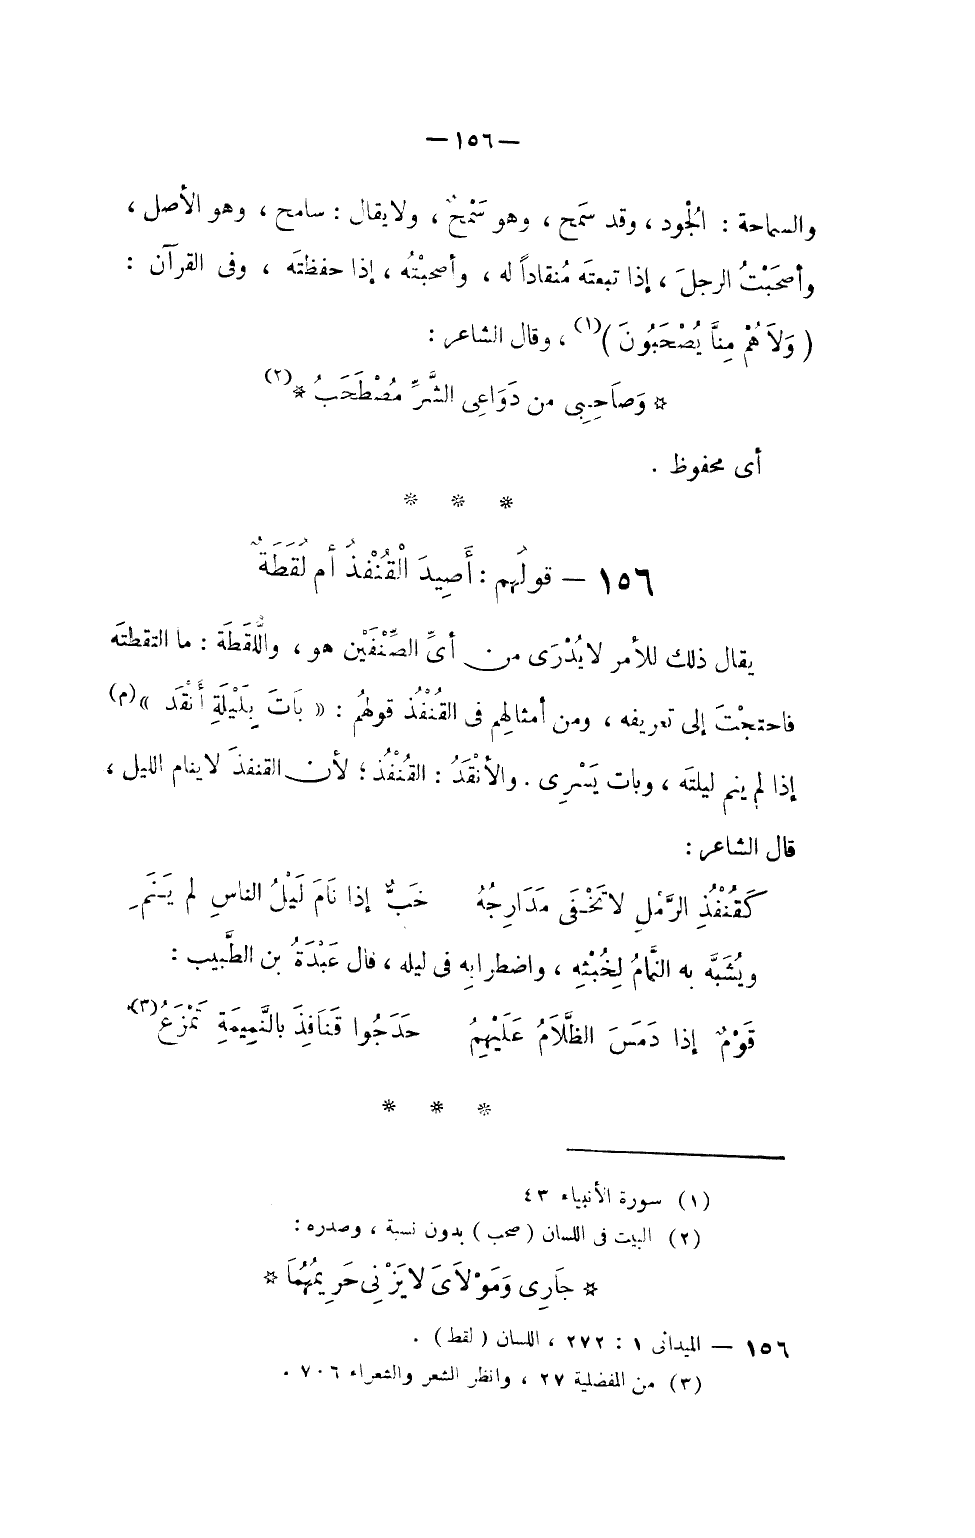 — ١٥٦ —
والسماحة : الْجُود ، وقد سَمح ، وهو سَمْحٌ ، ولايقال : سامح ، وهو الأصل ،
وأصحَبْتُ الرجلَ ، إذا تبعتَه مُنقاداً له ، وأصحبْتُه ، إذا حفظتَه ، وفى القرآن :
( وَلاَ هُمْ مِنَّا يُصْحَبُونَ )(١) ، وقال الشاعر :
* وَصَاحِبِى من دَوَاعِى الشَّرِّ مُصْطَحَبُ *(٢)
أى محفوظ .
* * *
١٥٦ — قولهم : أَصِيدَ الْقُنْفُذُ أم لُقَطَةٌ
يقال ذلك للأمر لايُدْرَى من أىِّ الصِّنْفَيْن هو ، واللُّقَطَة : ما التقطتَه
فاحتجْتَ إلى تعريفه ، ومن أمثالهم فى القُنْفُذ قولهُم : « بَاتَ بِلَيْلَةِ أَنْقَدَ »(م)
إذا لم ينم ليلتَه ، وبات يَسْرِى . والأنْقَدُ : القُنْفُذ ؛ لأن القنفذَ لاينام الليل ،
قال الشاعر :
كَقُنْفُذِ الرَّمْلِ لاتَخْفَى مَدَارِجُهُ خَبٌّ إذا نَامَ لَيْلُ الناسِ لم يَنَمِ
ويُشَبَّه به النَّمامُ لِخُبْثِهِ ، واضطرابِه فى ليله ، قال عَبْدَةُ بن الطَّبِيب :
قَوْمٌ إذا دَمَسَ الظَّلاَمُ عَلَيْهِمُ حَدَجُوا قَنَافِذَ بالنَّمِيمَةِ تَمْزَعُ(٣)
* * *
(١) سورة الأنبياء ٤٣
(٢) البيت فى اللسان ( صحب ) بدون نسبة ، وصدره :
* جَارِى وَمَوْلاَىَ لايَزْنِى حَرِيمُهُمَا *
١٥٦ — الميدانى ١ : ٢٧٢ ، اللسان ( لقط ) .
(٣) من المفضلية ٢٧ ، وانظر الشعر والشعراء ٧٠٦ .